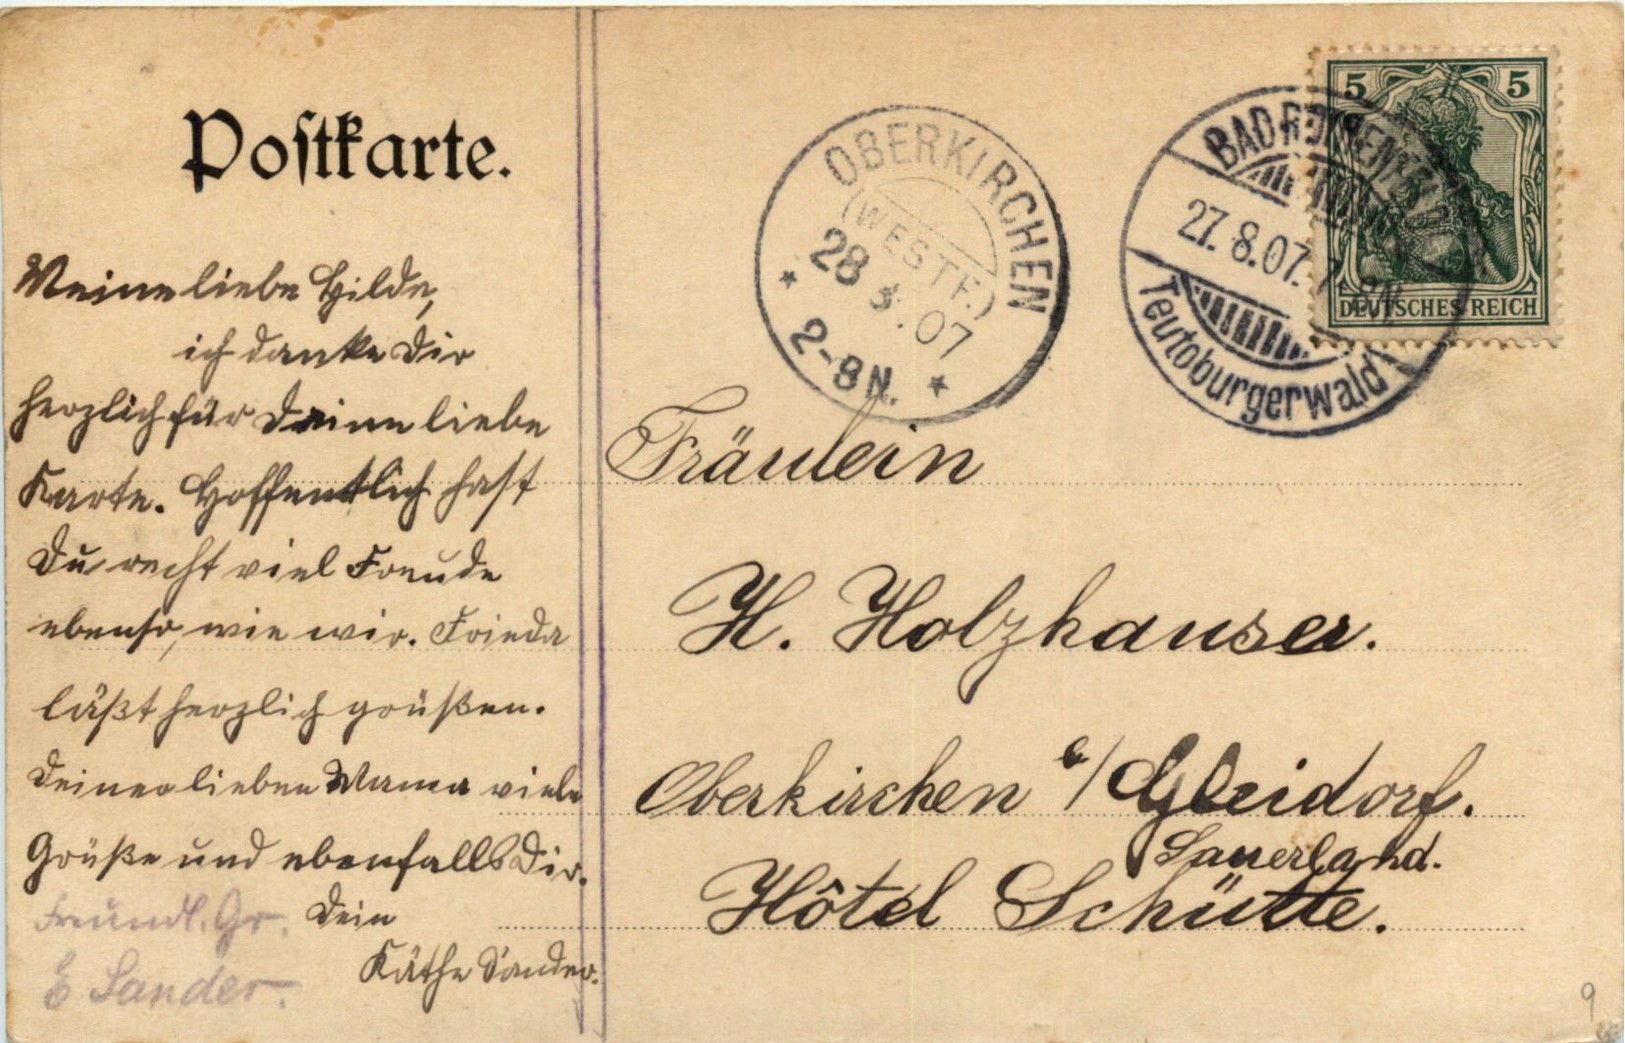 Postkarte.
Meine liebe Hilde,
ich danke Dir
herzlich für Deine liebe
Karte. Hoffentlich hast
Du recht viel Freude
ebenso, wie wir. Frieda
läßt herzlich grüßen.
Deiner lieben Mama viele
Grüße und ebenfalls Dir.
Dein
Käthe Sander.
Freundl. Gr.
E Sander.
OBERKIRCHEN
(WESTF.)
28 8. 07
2-8N.
BAD ROTHENFELDE
27. 8. 07. 7-8N
Teutoburgerwald
5 5
DEUTSCHES REICH
Fräulein
H. Holzhauser.
Oberkirchen b/Gleidorf.
Sauerland.
Hôtel Schütte.
9